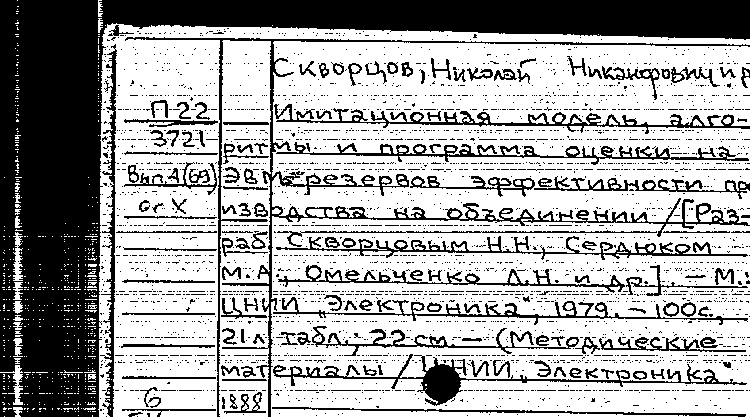 Скворцов, Николай Никанорович и р
П 22 Имитационная модель, алго-
3721 ритмы и программа оценки на
Вып. 4(69) ЭВМ резервов эффективности пр
изводства на объединении / [Раз-
раб. Скворцовым Н.Н., Сердюком
М.А., Омельченко Л.Н. и др.]. – М.:
ЦНИИ „Электроника", 1979. – 100с,
21 л. табл.; 22 см. – (Методические
материалы / ЦНИИ „Электроника"
6 1888